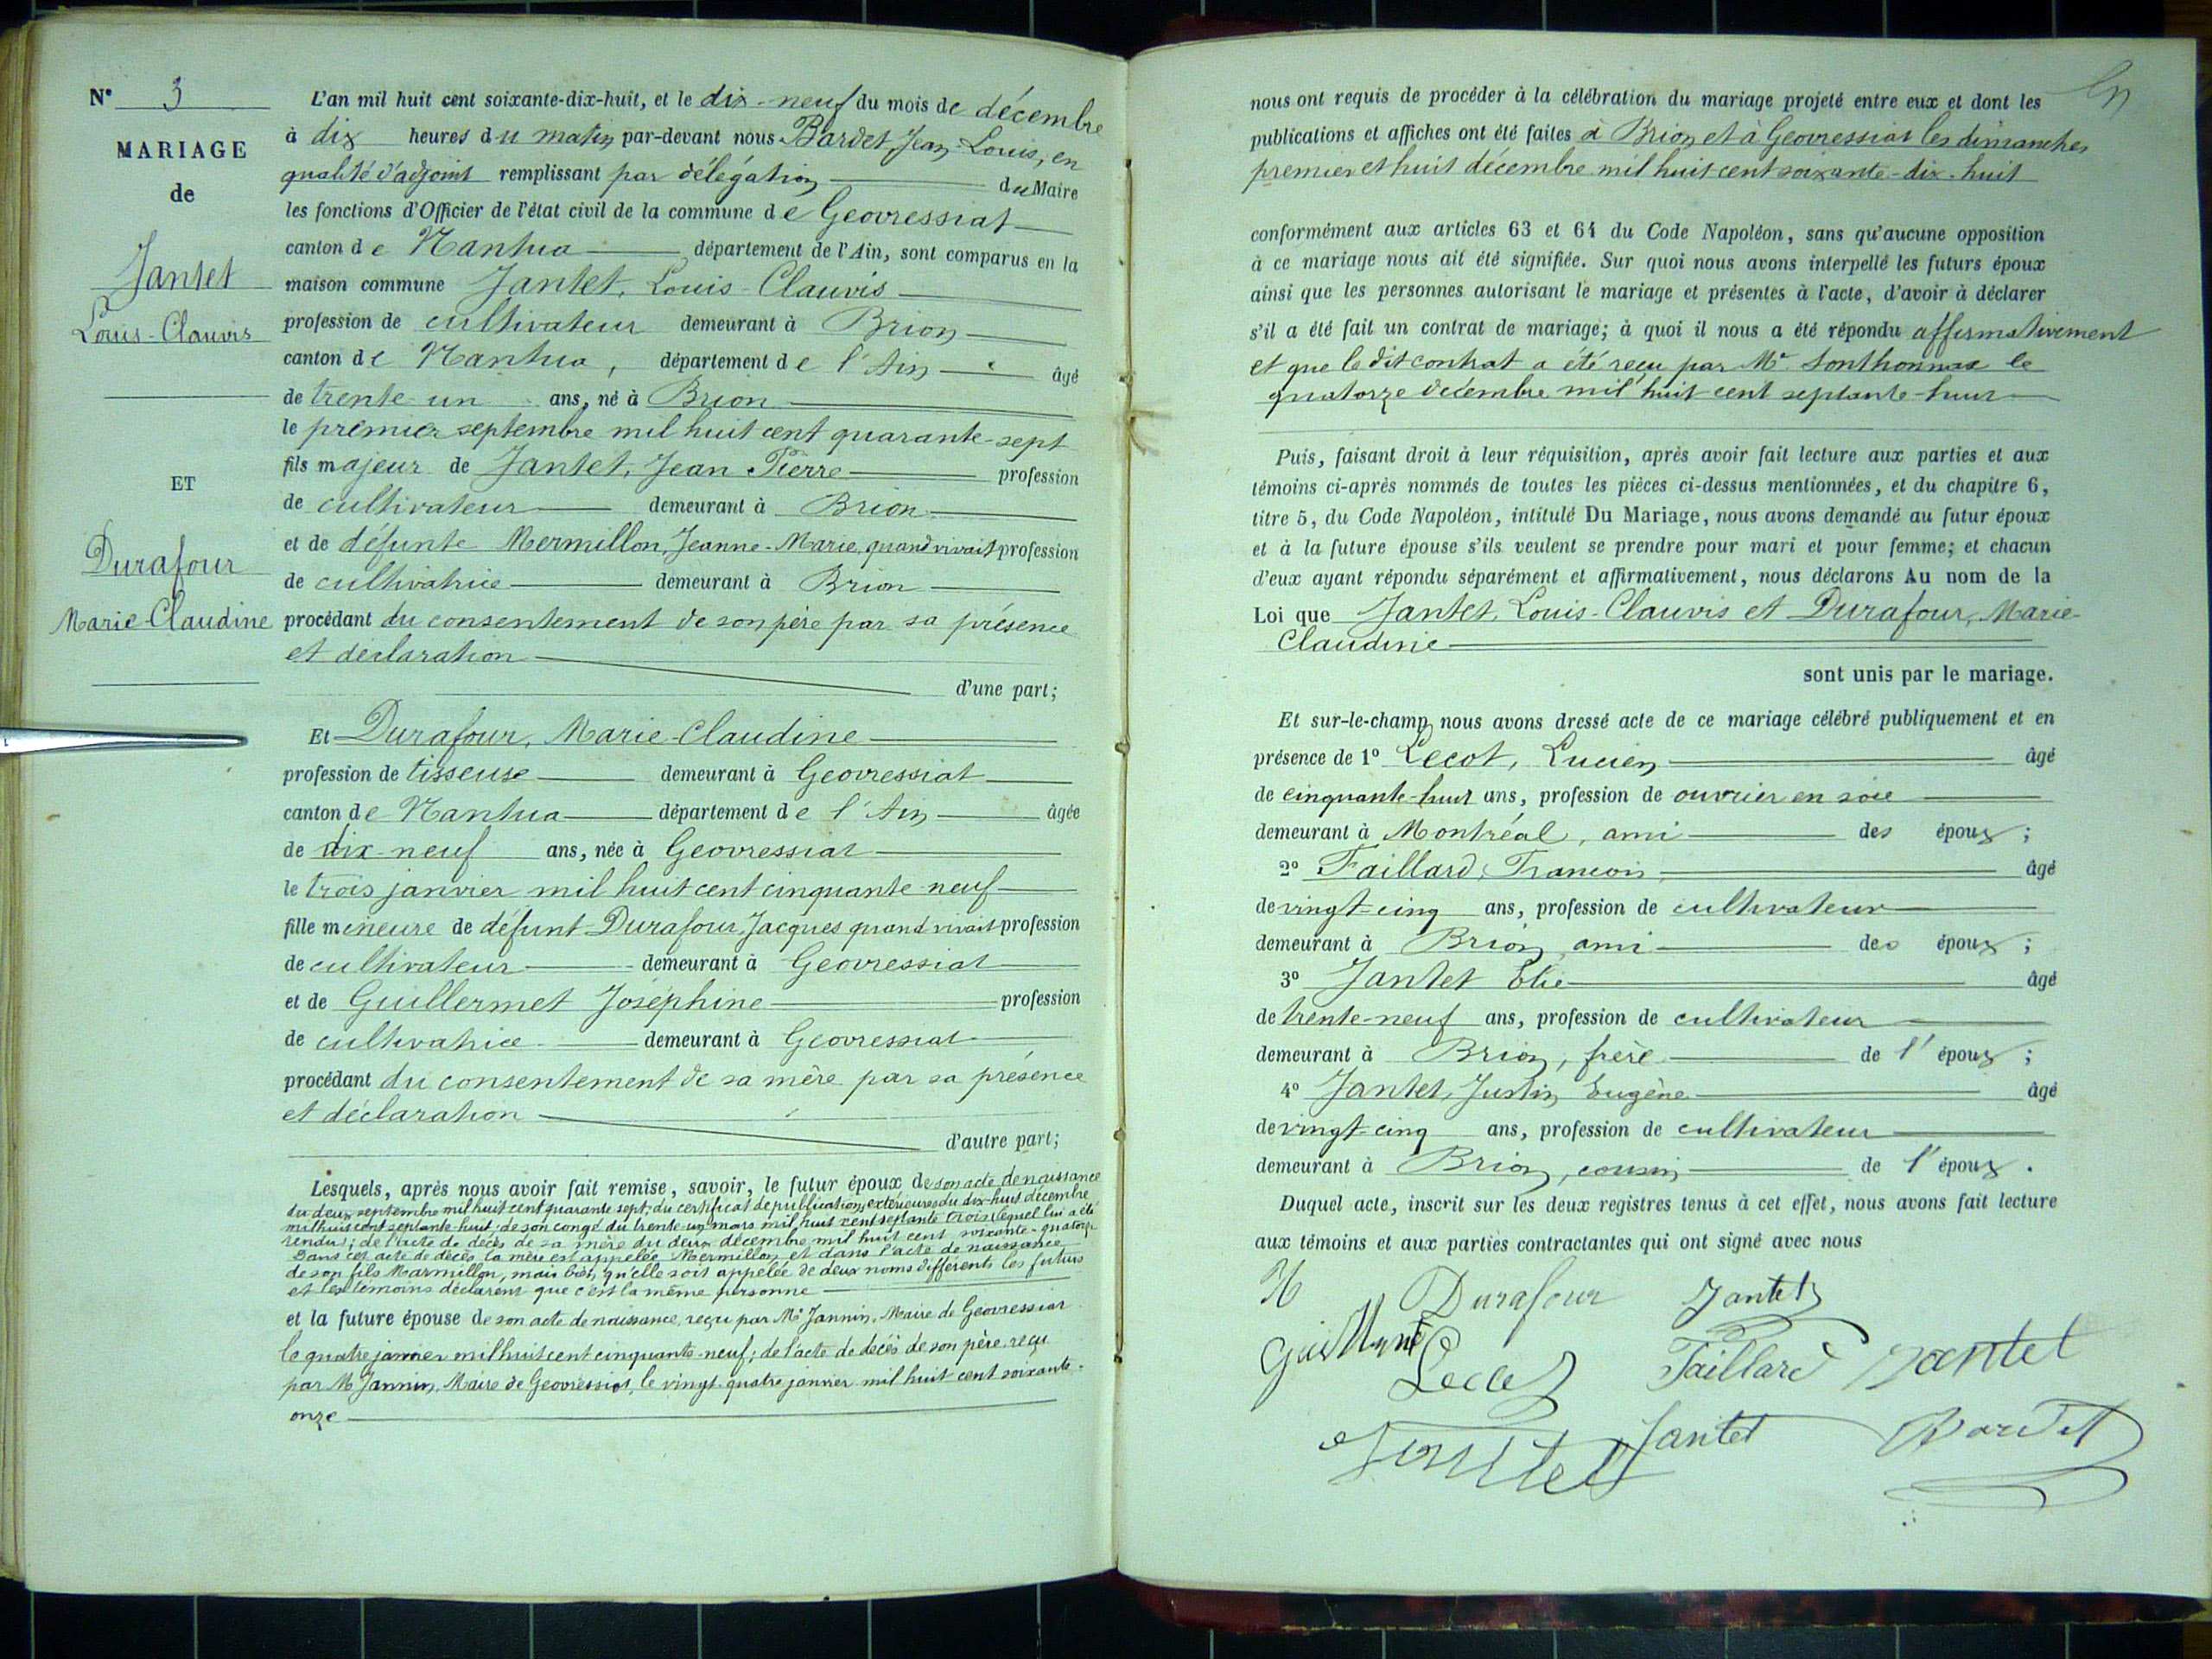 N° 3
MARIAGE
de
Jantet
Louis-Clauvis
ET
Durafour
Marie-Claudine
L'an mil huit cent soixante-dix-huit, et le dix-neuf du mois de décembre
à dix heures du matin par-devant nous Bardet Jean-Louis, en
qualité d'adjoint remplissant par délégation du Maire
les fonctions d'Officier de l'état civil de la commune de Geovressiat
canton de Nantua département de l'Ain, sont comparus en la
maison commune Jantet, Louis-Clauvis
profession de cultivateur demeurant à Brion
canton de Nantua, département de l'Ain âgé
de trente un ans, né à Brion
le premier septembre mil huit cent quarante-sept
fils majeur de Jantet, Jean Pierre profession
de cultivateur demeurant à Brion
et de défunte Mermillon, Jeanne-Marie, quand vivait profession
de cultivatrice demeurant à Brion
procédant du consentement de son père par sa présence
et déclaration
d'une part;
Et Durafour, Marie-Claudine
profession de tisseuse demeurant à Geovressiat
canton de Nantua département de l'Ain âgée
de dix-neuf ans, née à Geovressiat
le trois janvier mil huit cent cinquante-neuf
fille mineure de défunt Durafour, Jacques quand vivait profession
de cultivateur demeurant à Geovressiat
et de Guillermet Joséphine profession
de cultivatrice demeurant à Geovressiat
procédant du consentement de sa mère par sa présence
et déclaration
d'autre part;
Lesquels, après nous avoir fait remise, savoir, le futur époux de son acte de naissance
du deux septembre mil huit cent quarante sept; du certificat de publications extérieures du dix-huit décembre
mil huit cent septante-huit; de son congé du trente-un mars mil huit cent septante trois lequel lui a été
rendu; de l'acte de décès de sa mère du deux décembre mil huit cent soixante-quatorze
Dans cet acte de décès la mère est appelée Mermillon et dans l'acte de naissance
de son fils Marmillon, mais bien qu'elle soit appelée de deux noms différents les futurs
et les témoins déclarent que c'est la même personne
et la future épouse de son acte de naissance, reçu par Mr Jannin, Maire de Geovressiat
le quatre janvier mil huit cent cinquante-neuf; de l'acte de décès de son père reçu
par Mr Jannin, Maire de Geovressiat, le vingt-quatre janvier mil huit cent soixante-
onze
nous ont requis de procéder à la célébration du mariage projeté entre eux et dont les
publications et affiches ont été faites à Brion et à Geovressiat les dimanches
premier et huit décembre mil huit cent soixante-dix-huit
conformément aux articles 63 et 64 du Code Napoléon, sans qu'aucune opposition
à ce mariage nous ait été signifiée. Sur quoi nous avons interpellé les futurs époux
ainsi que les personnes autorisant le mariage et présentes à l'acte, d'avoir à déclarer
s'il a été fait un contrat de mariage; à quoi il nous a été répondu affirmativement
et que le dit contrat a été reçu par Me Sonthonnax le
quatorze décembre mil huit cent septante-huit
Puis, faisant droit à leur réquisition, après avoir fait lecture aux parties et aux
témoins ci-après nommés de toutes les pièces ci-dessus mentionnées, et du chapitre 6,
titre 5, du Code Napoléon, intitulé Du Mariage, nous avons demandé au futur époux
et à la future épouse s'ils veulent se prendre pour mari et pour femme; et chacun
d'eux ayant répondu séparément et affirmativement, nous déclarons Au nom de la
Loi que Jantet, Louis-Clauvis et Durafour, Marie-
Claudine
sont unis par le mariage.
Et sur-le-champ nous avons dressé acte de ce mariage célébré publiquement et en
présence de 1° Lecot, Lucien âgé
de cinquante-huit ans, profession de ouvrier en soie
demeurant à Montréal, ami des époux;
2° Faillard, Francois âgé
de vingt-cinq ans, profession de cultivateur
demeurant à Brion, ami des époux;
3° Jantet Elie âgé
de trente-neuf ans, profession de cultivateur
demeurant à Brion, frère de l'époux;
4° Jantet, Justin Eugène âgé
de vingt-cinq ans, profession de cultivateur
demeurant à Brion, cousin de l'époux.
Duquel acte, inscrit sur les deux registres tenus à cet effet, nous avons fait lecture
aux témoins et aux parties contractantes qui ont signé avec nous
Durafour Jantet
Lecot Faillard Jantet
Jantet Jantet Bardet